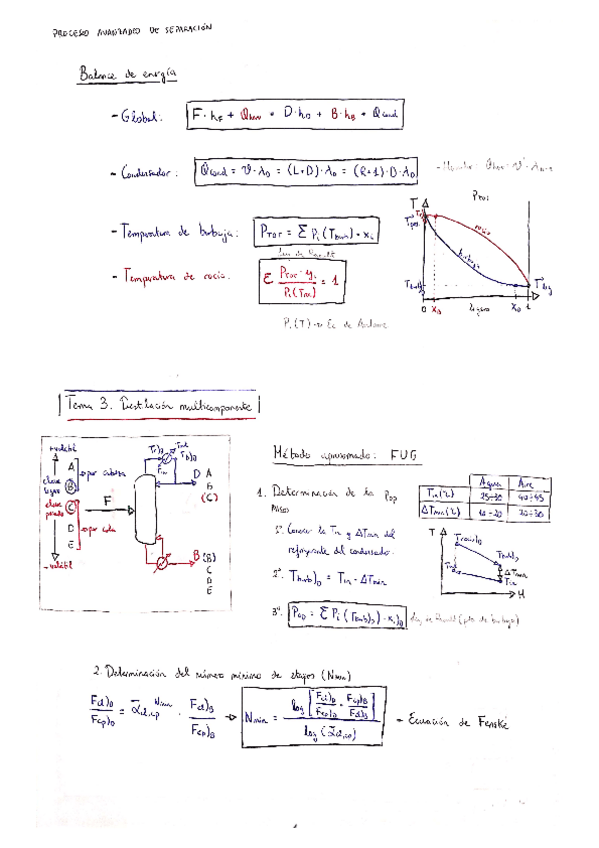 PROCESO AVANZADO DE SEPARACIÓN
Balance de energía
- Global: F·h_F + Q_hew = D·h_D + B·h_B + Q_cond
- Condensador: Q_cond = V·λ_D = (L+D)·λ_D = (R+1)·D·λ_D
- Temperatura de burbuja: P_TOT = Σ P_i (T_burb) · x_i
Ley de Raoult
- Temperatura de rocío: Σ P_TOT · y_i / P_i (T_roc) = 1
P_i (T) → Ec de Antoine
T
P_TOT
rocío
burbuja
0 x_B ligero x_D 1
Tema 3. Destilación multicomponente
+volátil
A
B
C
D
E
clave ligero
clave pesado
por cabeza
por cola
-volátil
F
D A
B
(C)
B (B)
C
D
E
Método aproximado: FUG
1. Determinación de la P_op
Agua Aire
T_in (°C) 25-30 40-45
ΔT_min (°C) 10-20 20-30
1º. Conocer la T_in y ΔT_min del
refrigerante del condensador.
2º. T_burb)_D = T_in + ΔT_min
3º. P_op = Σ P_i (T_burb)_D) · x_i)_D Ley de Raoult (pto de burbuja)
T
T_rocío)_D
T_burb)_D
ΔT_min
T_out
T_in
H
2. Determinación del número mínimo de etapas (N_min)
F_cl)_D / F_cp)_D = ᾱ_cl,cp^N_min · F_cl)_B / F_cp)_B → N_min = log [ F_cl)_D / F_cp)_D · F_cp)_B / F_cl)_B ] / log (ᾱ_cl,cp) - Ecuación de Fenske